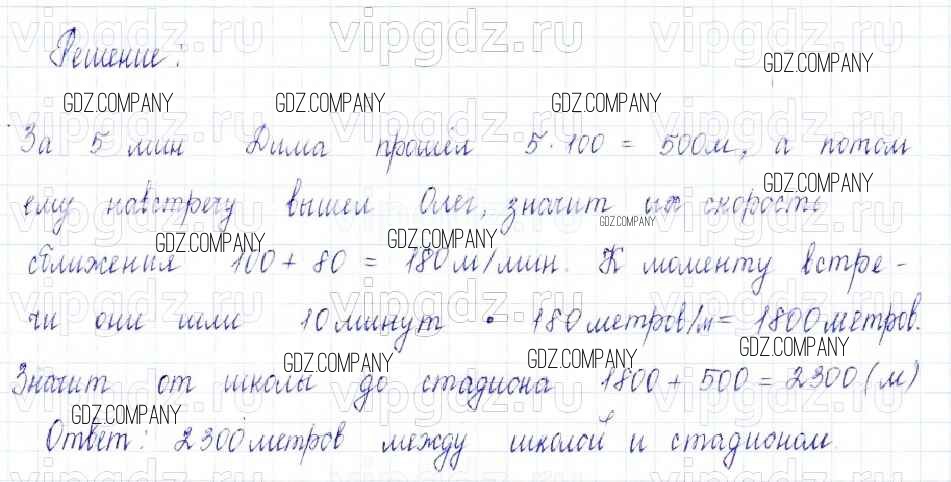 vipgdz.ru vipgdz.ru vipgdz.ru
Решение:
GDZ.COMPANY
GDZ.COMPANY GDZ.COMPANY GDZ.COMPANY
За 5 мин Дима прошёл 5·100 = 500м, а потом
GDZ.COMPANY
ему навстречу вышел Олег, значит их скорость
GDZ.COMPANY
GDZ.COMPANY GDZ.COMPANY
сближения 100 + 80 = 180 м/мин. К моменту встре-
vipgdz.ru vipgdz.ru vipgdz.ru
чи они шли 10 минут · 180 метров/м = 1800 метров.
GDZ.COMPANY GDZ.COMPANY GDZ.COMPANY
Значит от школы до стадиона 1800 + 500 = 2300 (м)
GDZ.COMPANY
Ответ: 2300 метров между школой и стадионом.